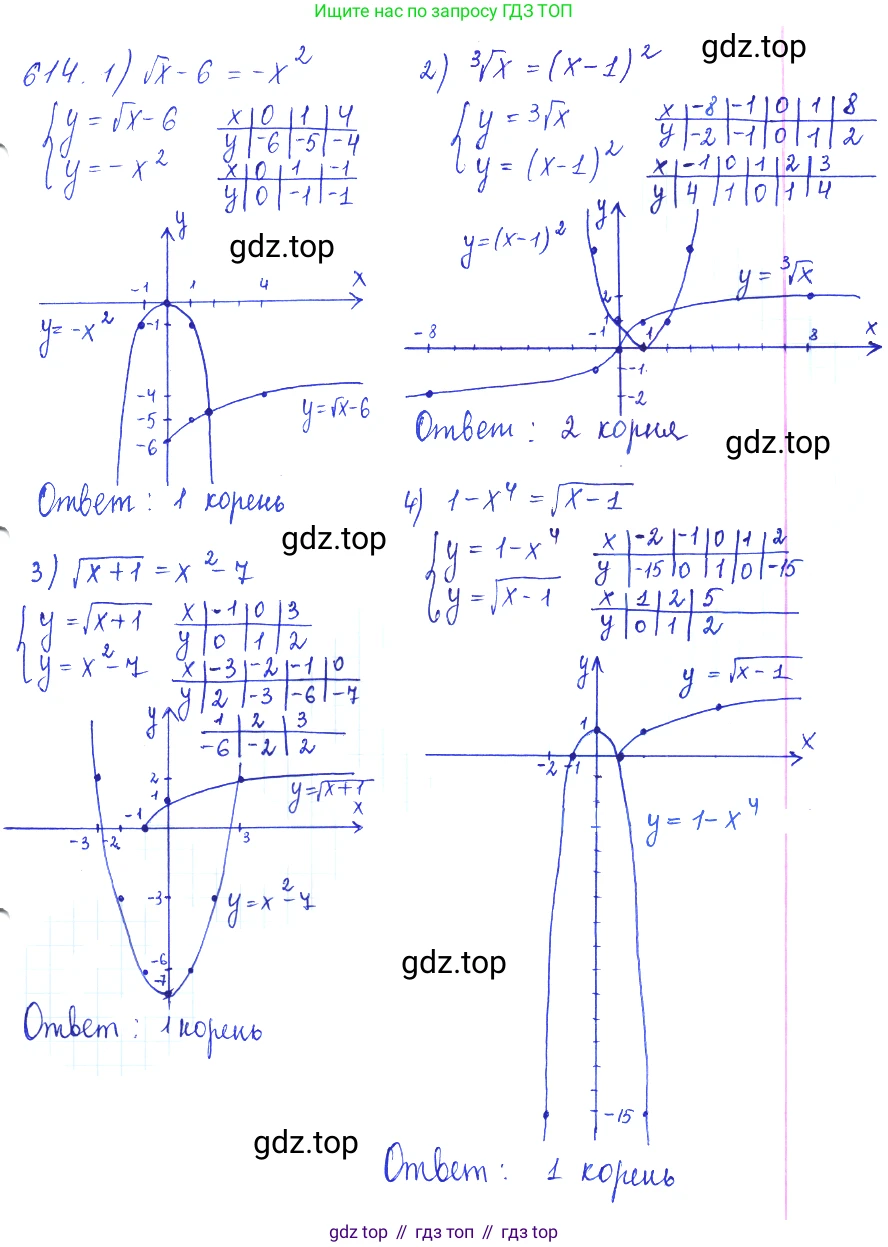 Ищите нас по запросу ГДЗ ТОП
614. 1) √x - 6 = -x²
{ y = √x - 6
{ y = -x²
x | 0 | 1 | 4
y | -6 | -5 | -4
x | 0 | 1 | -1
y | 0 | -1 | -1
gdz.top
y
x
-1 1 4
-1
-4
-5
-6
y = -x²
y = √x - 6
Ответ: 1 корень
2) ³√x = (x - 1)²
gdz.top
{ y = ³√x
{ y = (x - 1)²
x | -8 | -1 | 0 | 1 | 8
y | -2 | -1 | 0 | 1 | 2
x | -1 | 0 | 1 | 2 | 3
y | 4 | 1 | 0 | 1 | 4
y
y = (x - 1)²
y = ³√x
x
2
1
-8 -1 1 8
-1
-2
Ответ: 2 корня
gdz.top
gdz.top
3) √(x + 1) = x² - 7
{ y = √(x + 1)
{ y = x² - 7
x | -1 | 0 | 3
y | 0 | 1 | 2
x | -3 | -2 | -1 | 0
y | 2 | -3 | -6 | -7
1 | 2 | 3
-6 | -2 | 2
y
2
1
y = √(x + 1)
x
-3 -2 -1 3
-3
-6
-7
y = x² - 7
Ответ: 1 корень
4) 1 - x⁴ = √(x - 1)
{ y = 1 - x⁴
{ y = √(x - 1)
x | -2 | -1 | 0 | 1 | 2
y | -15 | 0 | 1 | 0 | -15
x | 1 | 2 | 5
y | 0 | 1 | 2
y
y = √(x - 1)
1
x
-2 -1
y = 1 - x⁴
gdz.top
-15
gdz.top
Ответ: 1 корень
gdz top // гдз топ // gdz top